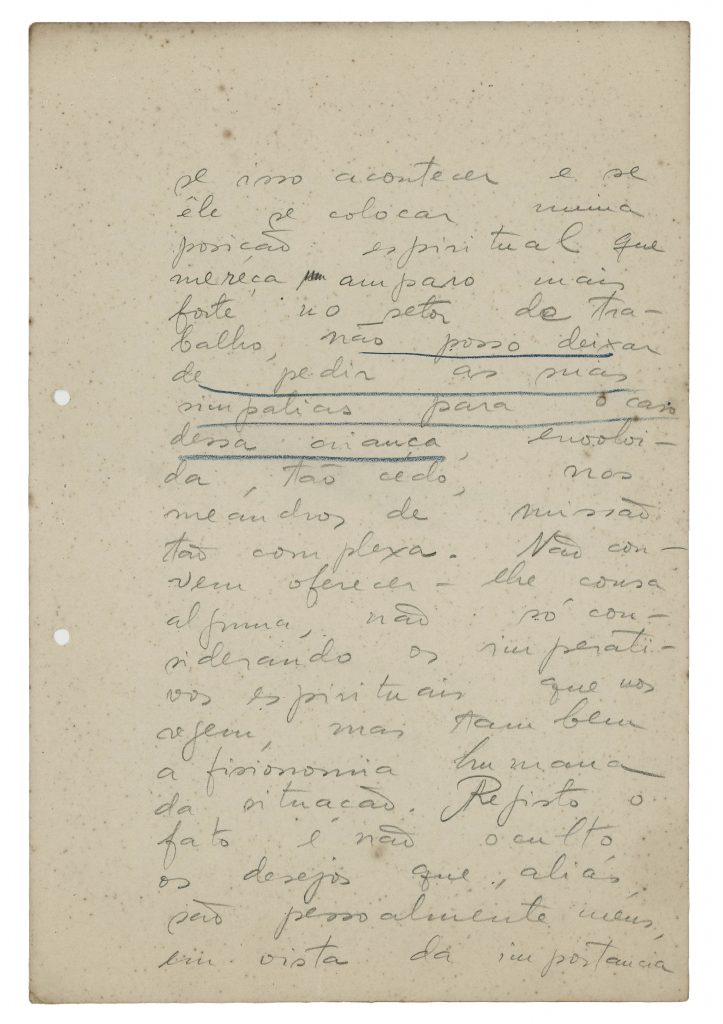 se isso acontecer e se
êle se colocar numa
posicão espiritual que
mereça um amparo mais
forte no setor de tra-
balho, não posso deixar
de pedir as suas
simpatias para o caso
dessa criança, envolvi-
da, tão cedo, nos
meandros de missão
tão complexa. Não con-
vem oferecer-lhe cousa
alguma, não só con-
siderando os imperati-
vos espirituais que nos
regem, mas tambem
a fisionomia humana
da situação. Registo o
fato e não oculto
os desejos que, aliás,
são pessoalmente meus,
em vista da importancia